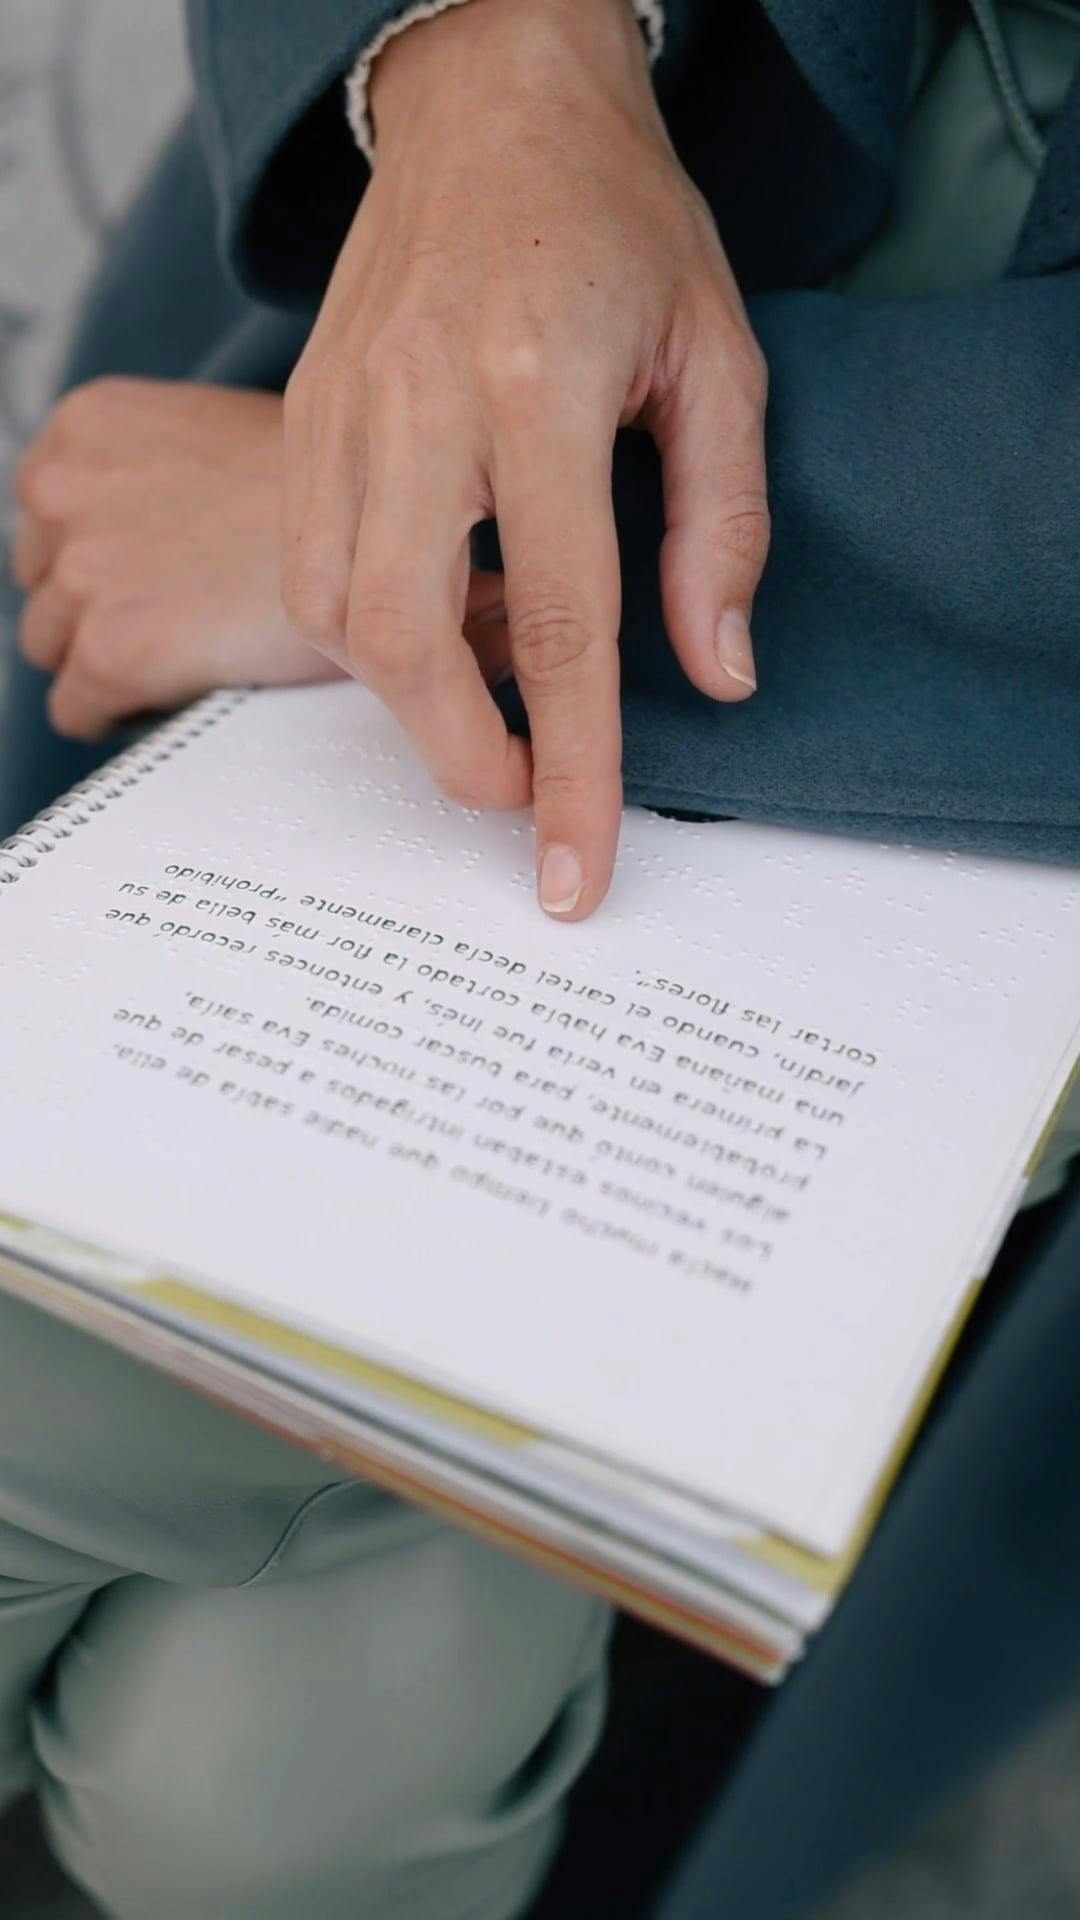 Hacía mucho tiempo que nadie sabía de ella.
Los vecinos estaban intrigados a pesar de que
alguien contó que por las noches Eva salía,
probablemente, para buscar comida.
La primera en verla fue Inés, y entonces recordó que
una mañana Eva había cortado la flor más bella de su
jardín, cuando el cartel decía claramente "prohibido
cortar las flores".